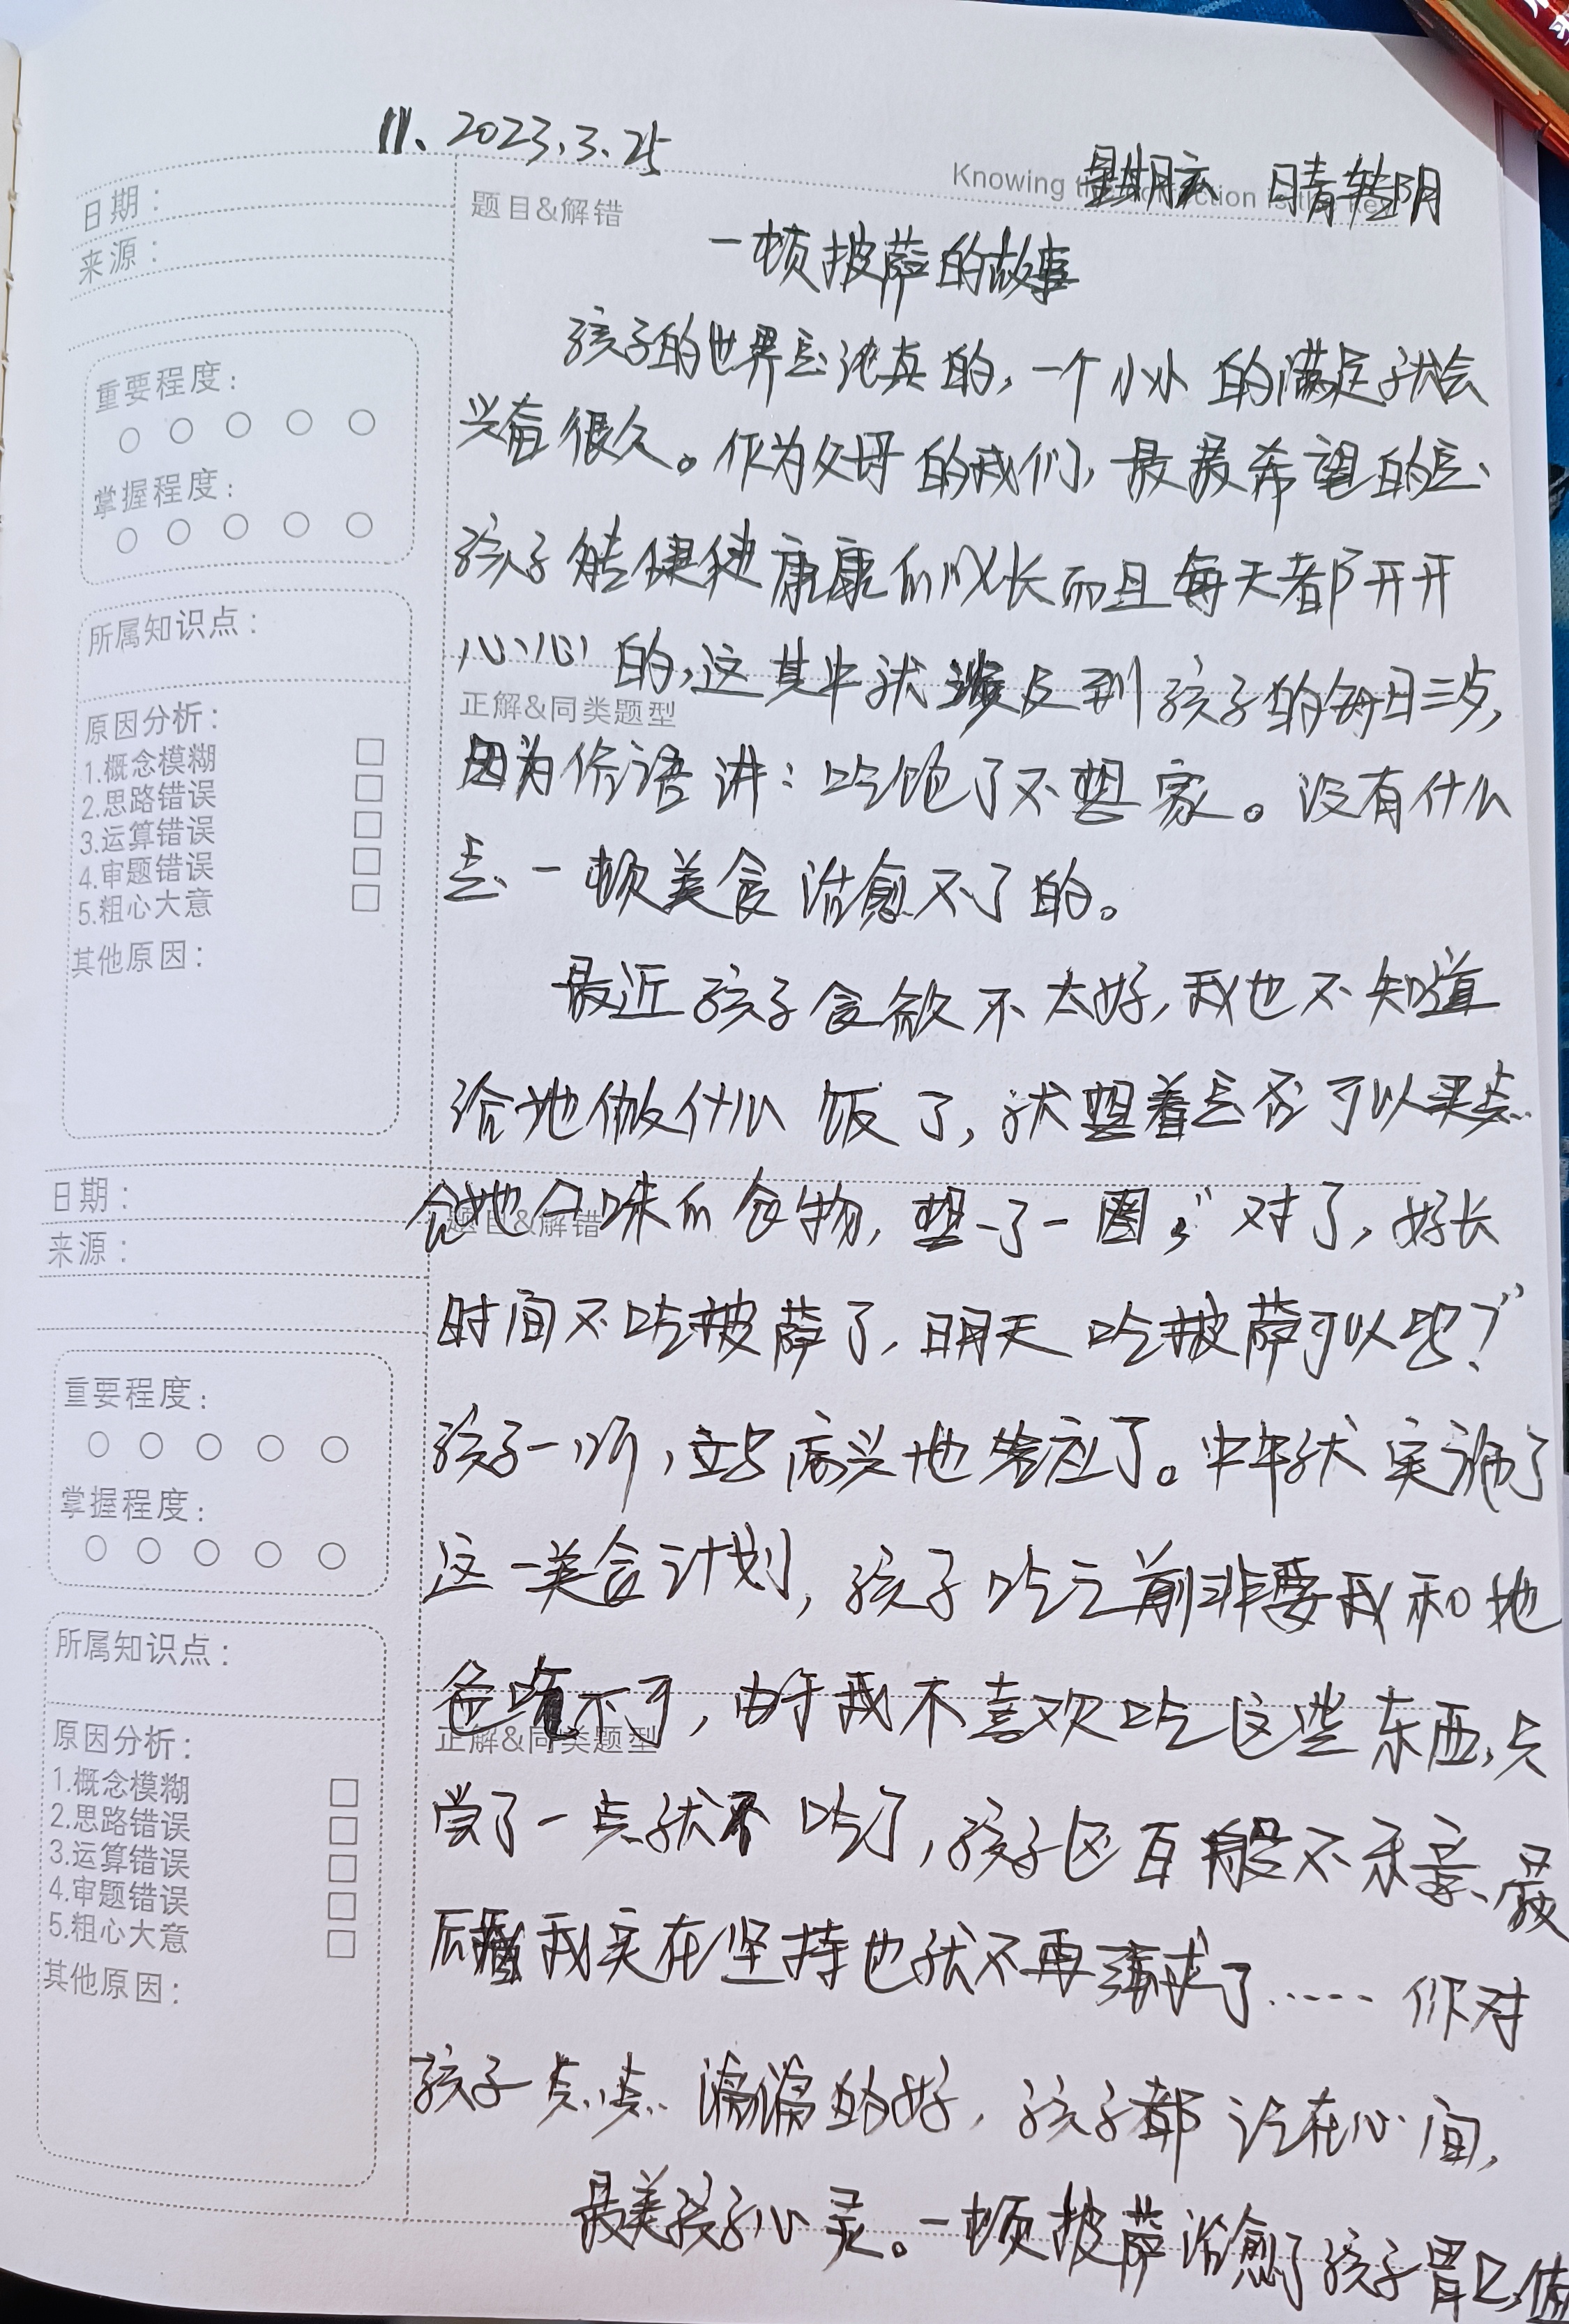 11、2023.3.25
星期六 晴转阴
Knowing
日期：
来源：
题目&解错
一顿披萨的故事
孩子的世界是纯真的，一个小小的满足就会
兴奋很久。作为父母的我们，最最希望的是
孩子能健健康康的成长而且每天都开开
心心的，这其中就涉及到孩子的每日三餐，
因为俗语讲：吃饱了不想家。没有什么
是一顿美食治愈不了的。
最近孩子食欲不太好，我也不知道
给她做什么饭了，就想着是否可以买点
合她口味的食物，想了一圈，“对了，好长
时间不吃披萨了，明天吃披萨可以吧？”
孩子一听，立马高兴地答应了。中午就实施了
这一美食计划，孩子吃之前非要我和她
爸吃不可，由于我不喜欢吃这些东西，只
尝了一点就不吃了，孩子还百般不乐意、最
后我实在坚持也就不再强求了……你对
孩子点点滴滴的好，孩子都记在心间，
最美孩子心灵。一顿披萨治愈了孩子胃口，值
重要程度：
掌握程度：
所属知识点：
原因分析：
1.概念模糊
2.思路错误
3.运算错误
4.审题错误
5.粗心大意
其他原因：
正解&同类题型
日期：
来源：
题目&解错
重要程度：
掌握程度：
所属知识点：
原因分析：
1.概念模糊
2.思路错误
3.运算错误
4.审题错误
5.粗心大意
其他原因：
正解&同类题型